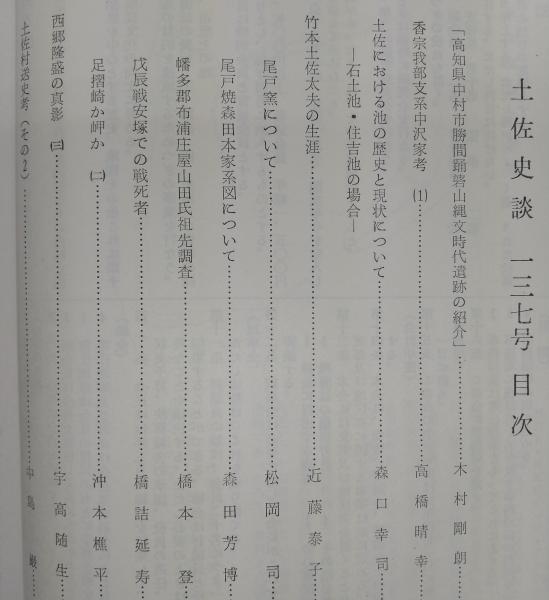 土佐史談 一三七号 目次
「高知県中村市勝間踊碆山縄文時代遺跡の紹介」……木村剛朗……
香宗我部支系中沢家考 (1)……高橋晴幸……
土佐における池の歴史と現状について……森口幸司……
―石土池・住吉池の場合―
竹本土佐太夫の生涯……近藤泰子……
尾戸窯について……松岡司……
尾戸焼森田本家系図について……森田芳博……
幡多郡布浦庄屋山田氏祖先調査……橋本登……
戊辰戦安塚での戦死者……橋詰延寿……
足摺崎か岬か (二)……沖本樵平……
西郷隆盛の真影 (三)……宇高随生……
土佐村送史考(その2)……中島